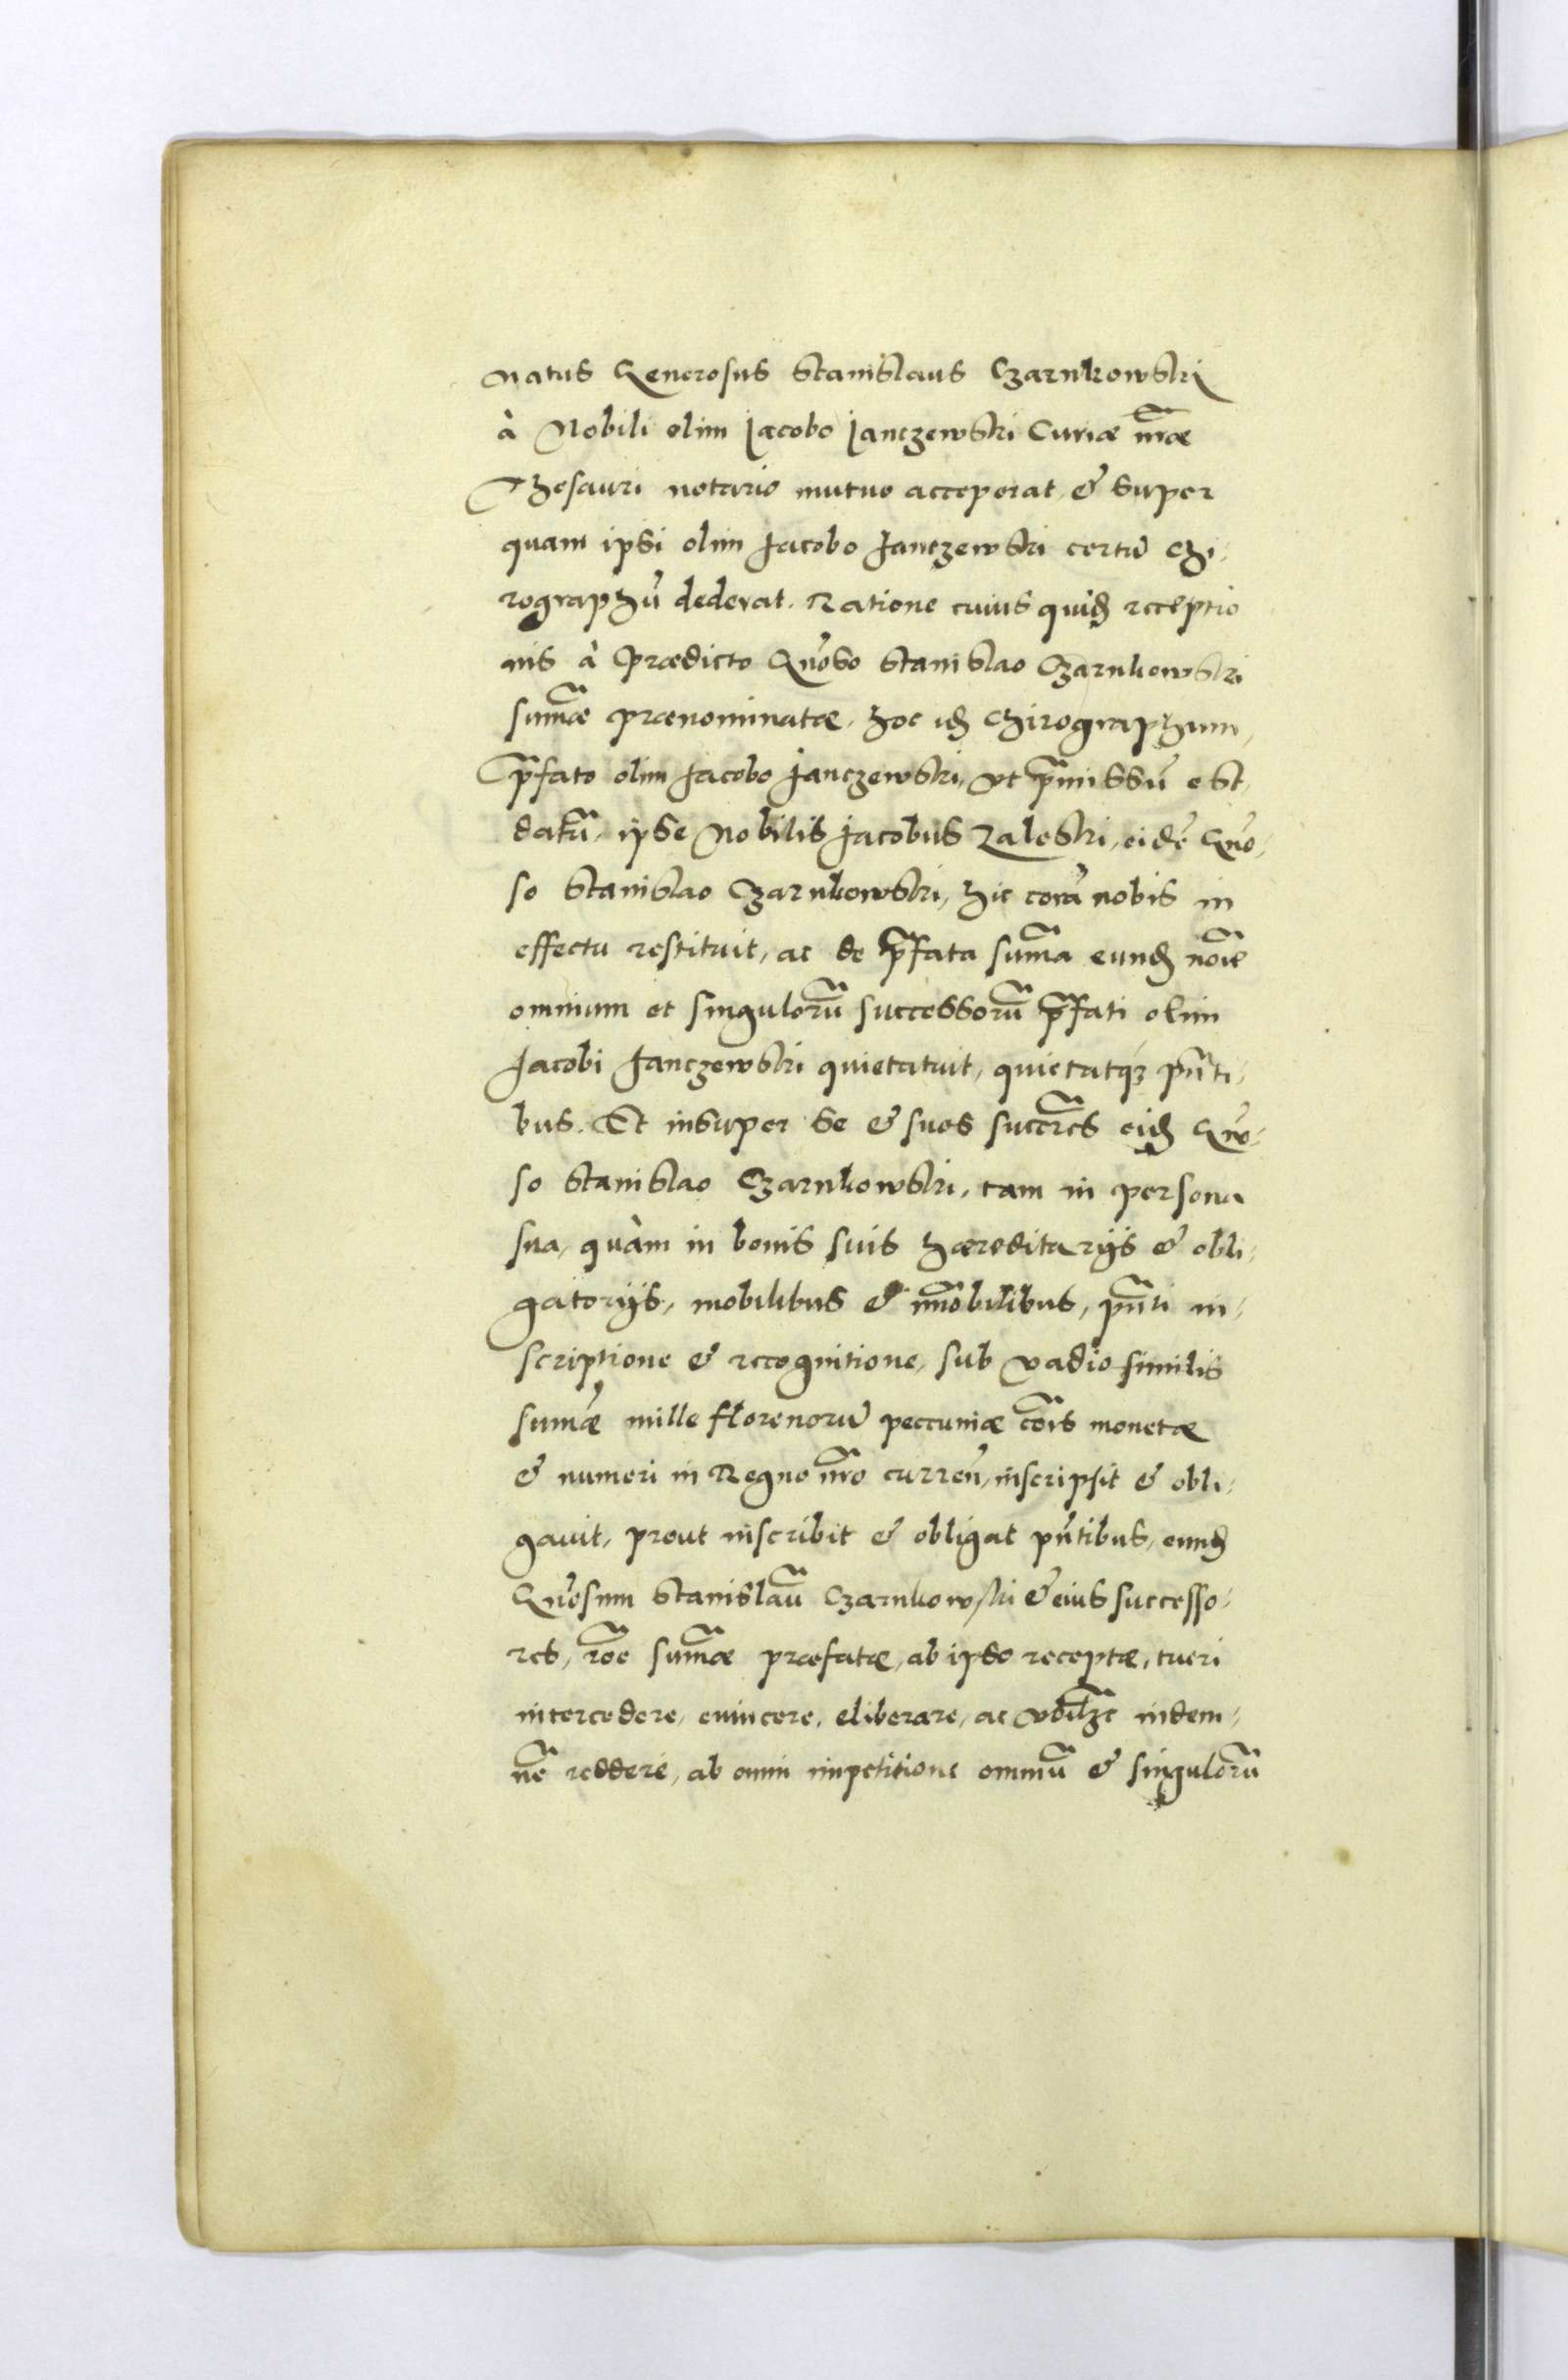 natus Generosus Stanislaus Czarnkowski
à Nobili olim Jacobo Janczewski Curiæ nr̃æ
Thesauri notario mutuo acceperat & super
quam ipsi olim Jacobo Janczewski certũ Chi-
rographũ dederat. Ratione cuius quidẽ receptio
nis à Prædicto Gñoso Stanislao Czarnkowski
sum̃æ prænominatæ, hoc idẽ Chirographum,
Pr̃fato olim Jacobo Janczewski, vt pr̃missũ est,
datũ, ipse Nobilis Jacobus Zaleski, eidẽ Gño-
so Stanislao Czarnkowski, hic corã nobis in
effectu restituit, ac de pr̃fata sum̃a eundẽ nõie
omnium et singulorũ successorũ pr̃fati olim
Jacobi Janczewski quietatuit, quietatq; pñti-
bus. Et insuper se & suos succr̃es eidẽ Gño-
so Stanislao Czarnkowski, tam in persona
sua, quàm in bonis suis hæreditarijs & obli-
gatorijs, mobilibus & im̃obilibus, pñti in-
scriptione & recognitione, sub vadio similis
sum̃æ mille florenorũ peccuniæ cõis monetæ
& numeri in Regno nr̃o currẽn, inscripsit & obli-
gauit, prout inscribit & obligat pñtibus, eundẽ
Gñosum Stanislaũ Czarnkowski & eius successo-
res, rõe sum̃æ præfatæ, ab ipso receptæ, tueri
intercedere, euincere, eliberare, ac vbilꝫ indem-
nẽ reddere, ab omni impetitione omniũ & singulorũ